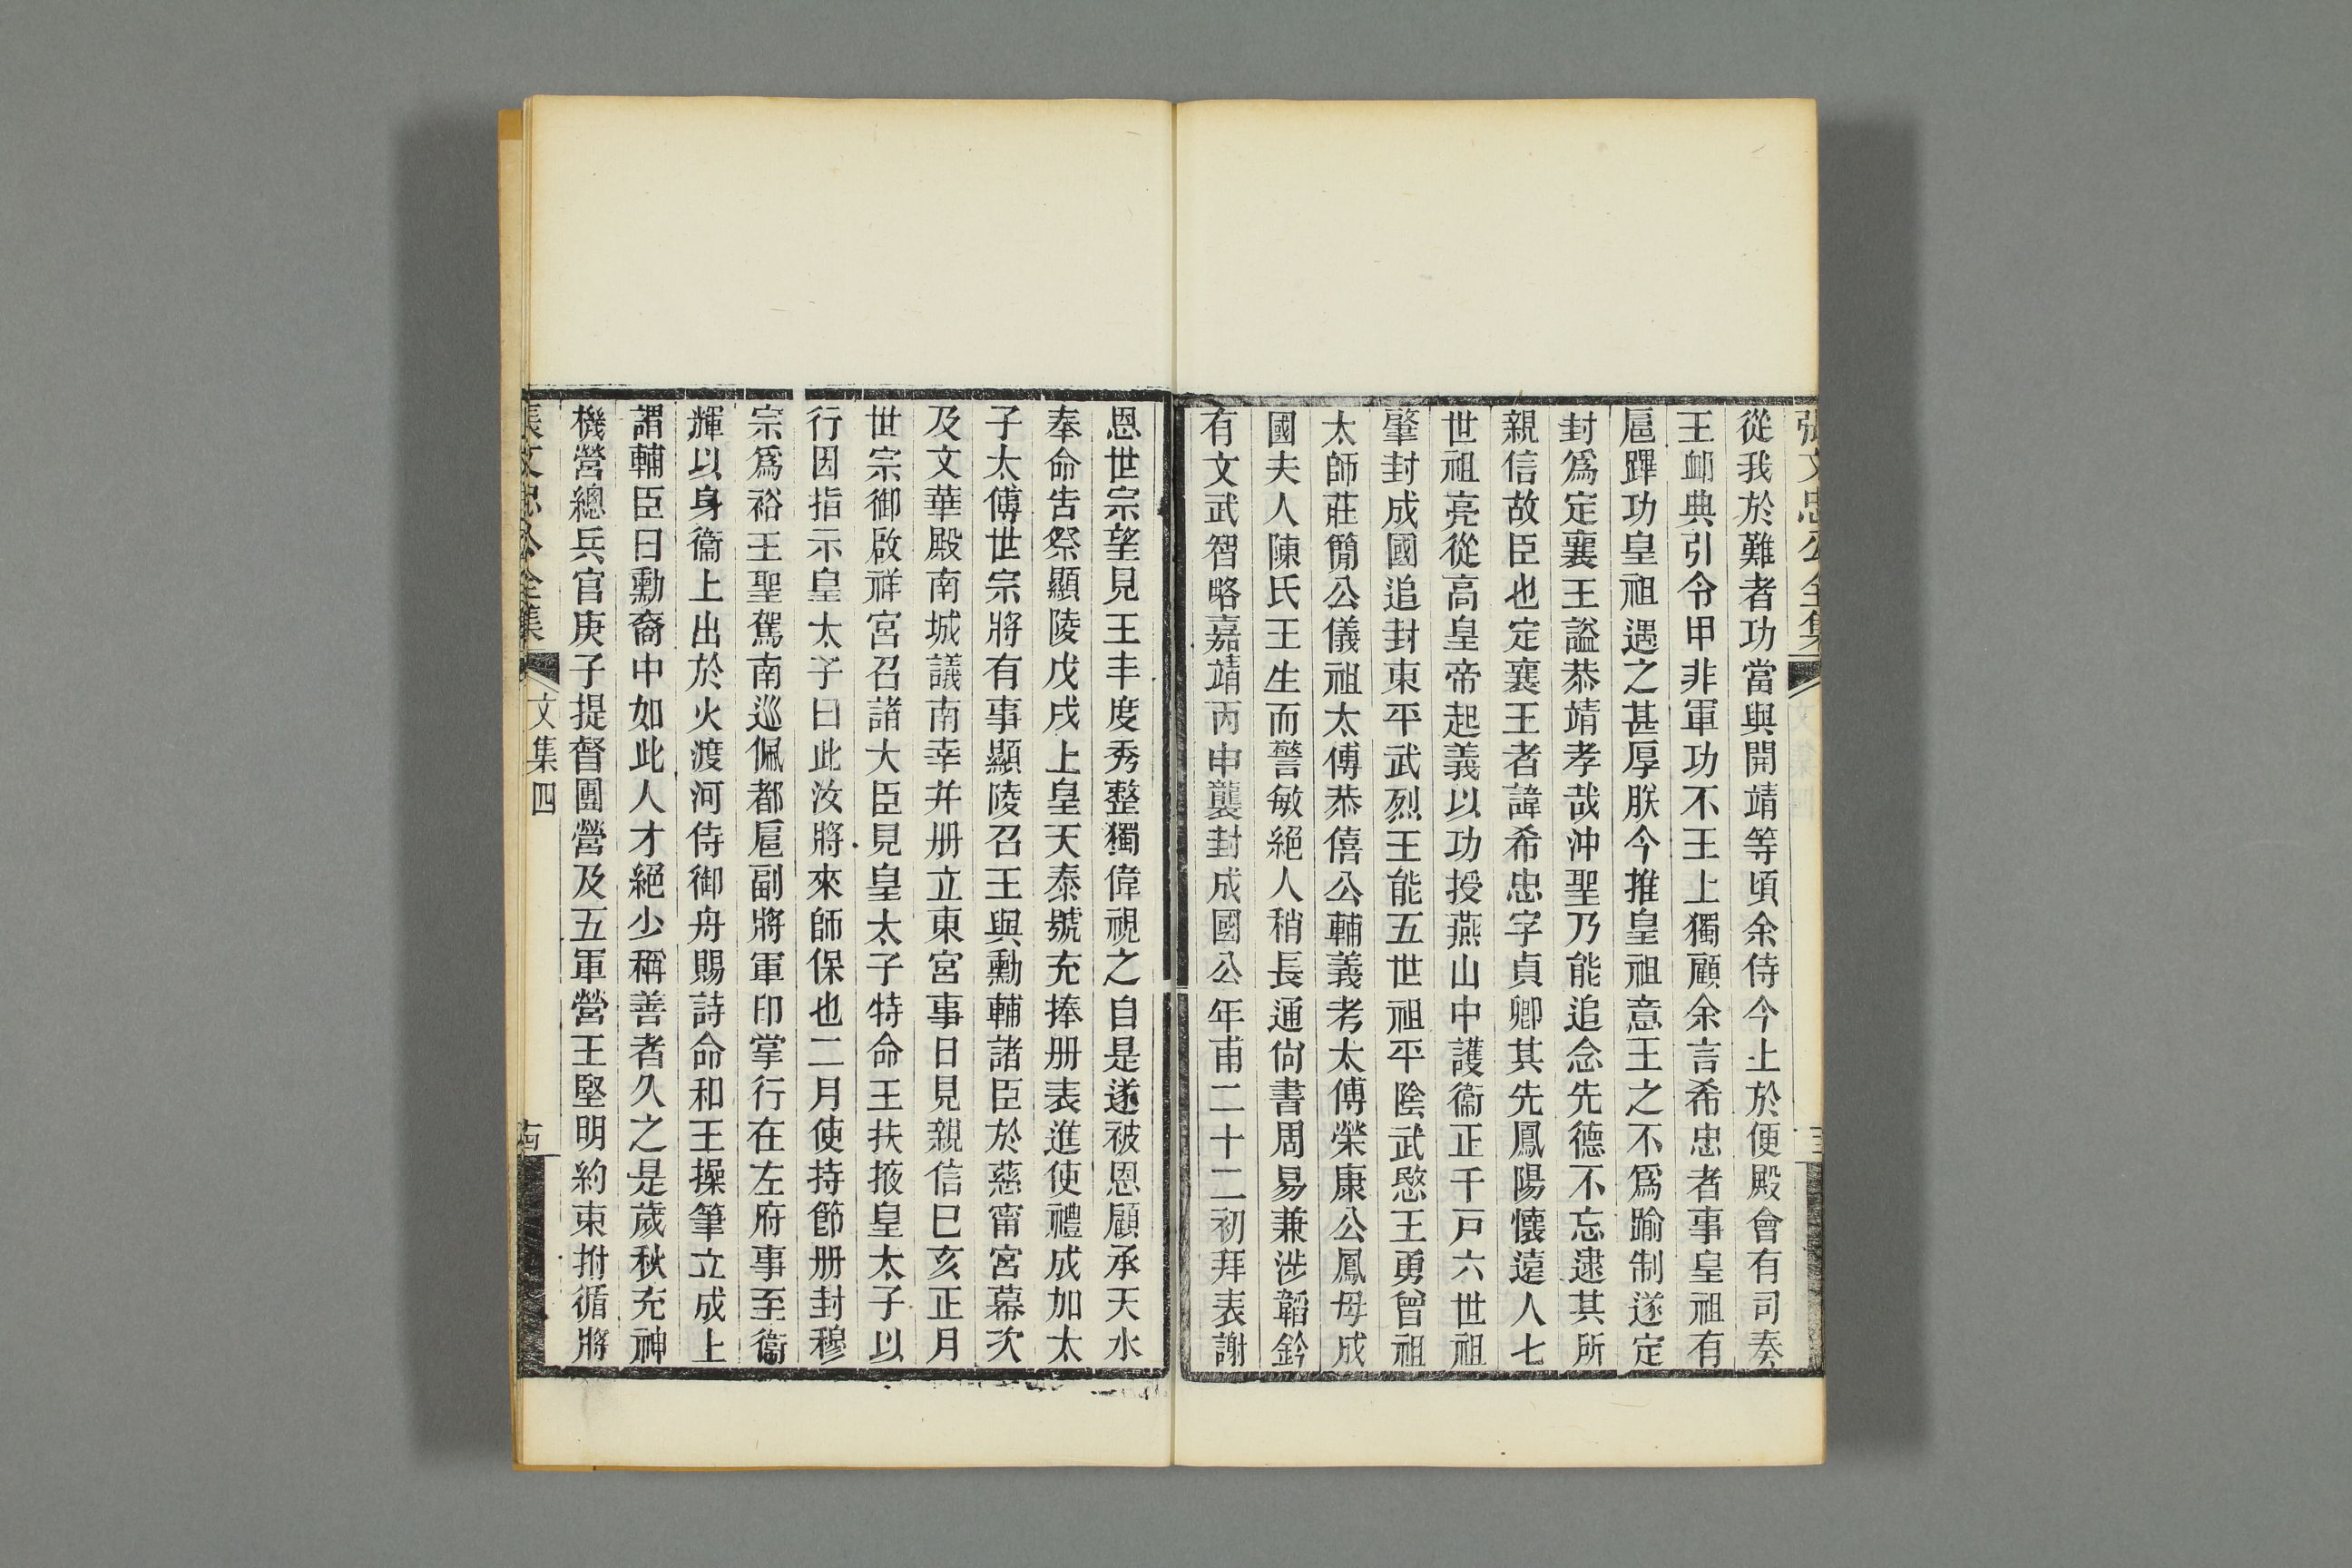 張文忠公全集
從我於難者功當與開靖等頃余侍今上於便殿會有司奏
王卹典引令甲非軍功不王上獨顧余言希忠者事皇祖有
扈蹕功皇祖遇之甚厚朕今推皇祖意王之不爲踰制遂定
封爲定襄王謚恭靖孝哉沖聖乃能追念先德不忘逮其所
親信故臣也定襄王者諱希忠字貞卿其先鳳陽懷遠人七
世祖亮從高皇帝起義以功授燕山中護衞正千戸六世祖
肇封成國追封東平武烈王能五世祖平陰武愍王勇曾祖
太師莊簡公儀祖太傅恭僖公輔義考太傅榮康公鳳母成
國夫人陳氏王生而警敏絕人稍長通尙書周易兼涉韜鈐
有文武智略嘉靖丙申襲封成國公年甫二十二初拜表謝
恩世宗望見王丰度秀整獨偉視之自是遂被恩顧承天水
奉命告祭顯陵戊戌上皇天泰號充捧册表進使禮成加太
子太傅世宗將有事顯陵召王與勳輔諸臣於慈甯宮幕次
及文華殿南城議南幸幷册立東宮事日見親信巳亥正月
世宗御啟祥宮召諸大臣見皇太子特命王扶掖皇太子以
行因指示皇太子曰此汝將來師保也二月使持節册封穆
宗爲裕王聖駕南巡佩都扈副將軍印掌行在左府事至衞
輝以身衞上出於火渡河侍御舟賜詩命和王操筆立成上
謂輔臣曰勳裔中如此人才絕少稱善者久之是歲秋充神
機營總兵官庚子提督團營及五軍營王堅明約束拊循將
張文忠公全集
文集四